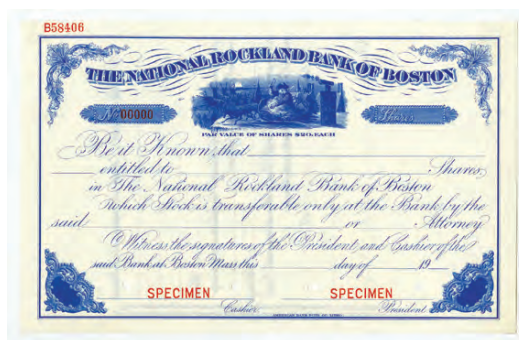 B58406
THE NATIONAL ROCKLAND BANK OF BOSTON
No 00000
Shares
PAR VALUE OF SHARES $20. EACH
Be it Known that
entitled to Shares
in The National Rockland Bank of Boston
which Stock is transferable only at the Bank by the
said or Attorney
Witness the signatures of the President and Cashier of the
said Bank at Boston Mass. this day of 19
SPECIMEN SPECIMEN
Cashier. President
AMERICAN BANK NOTE CO.